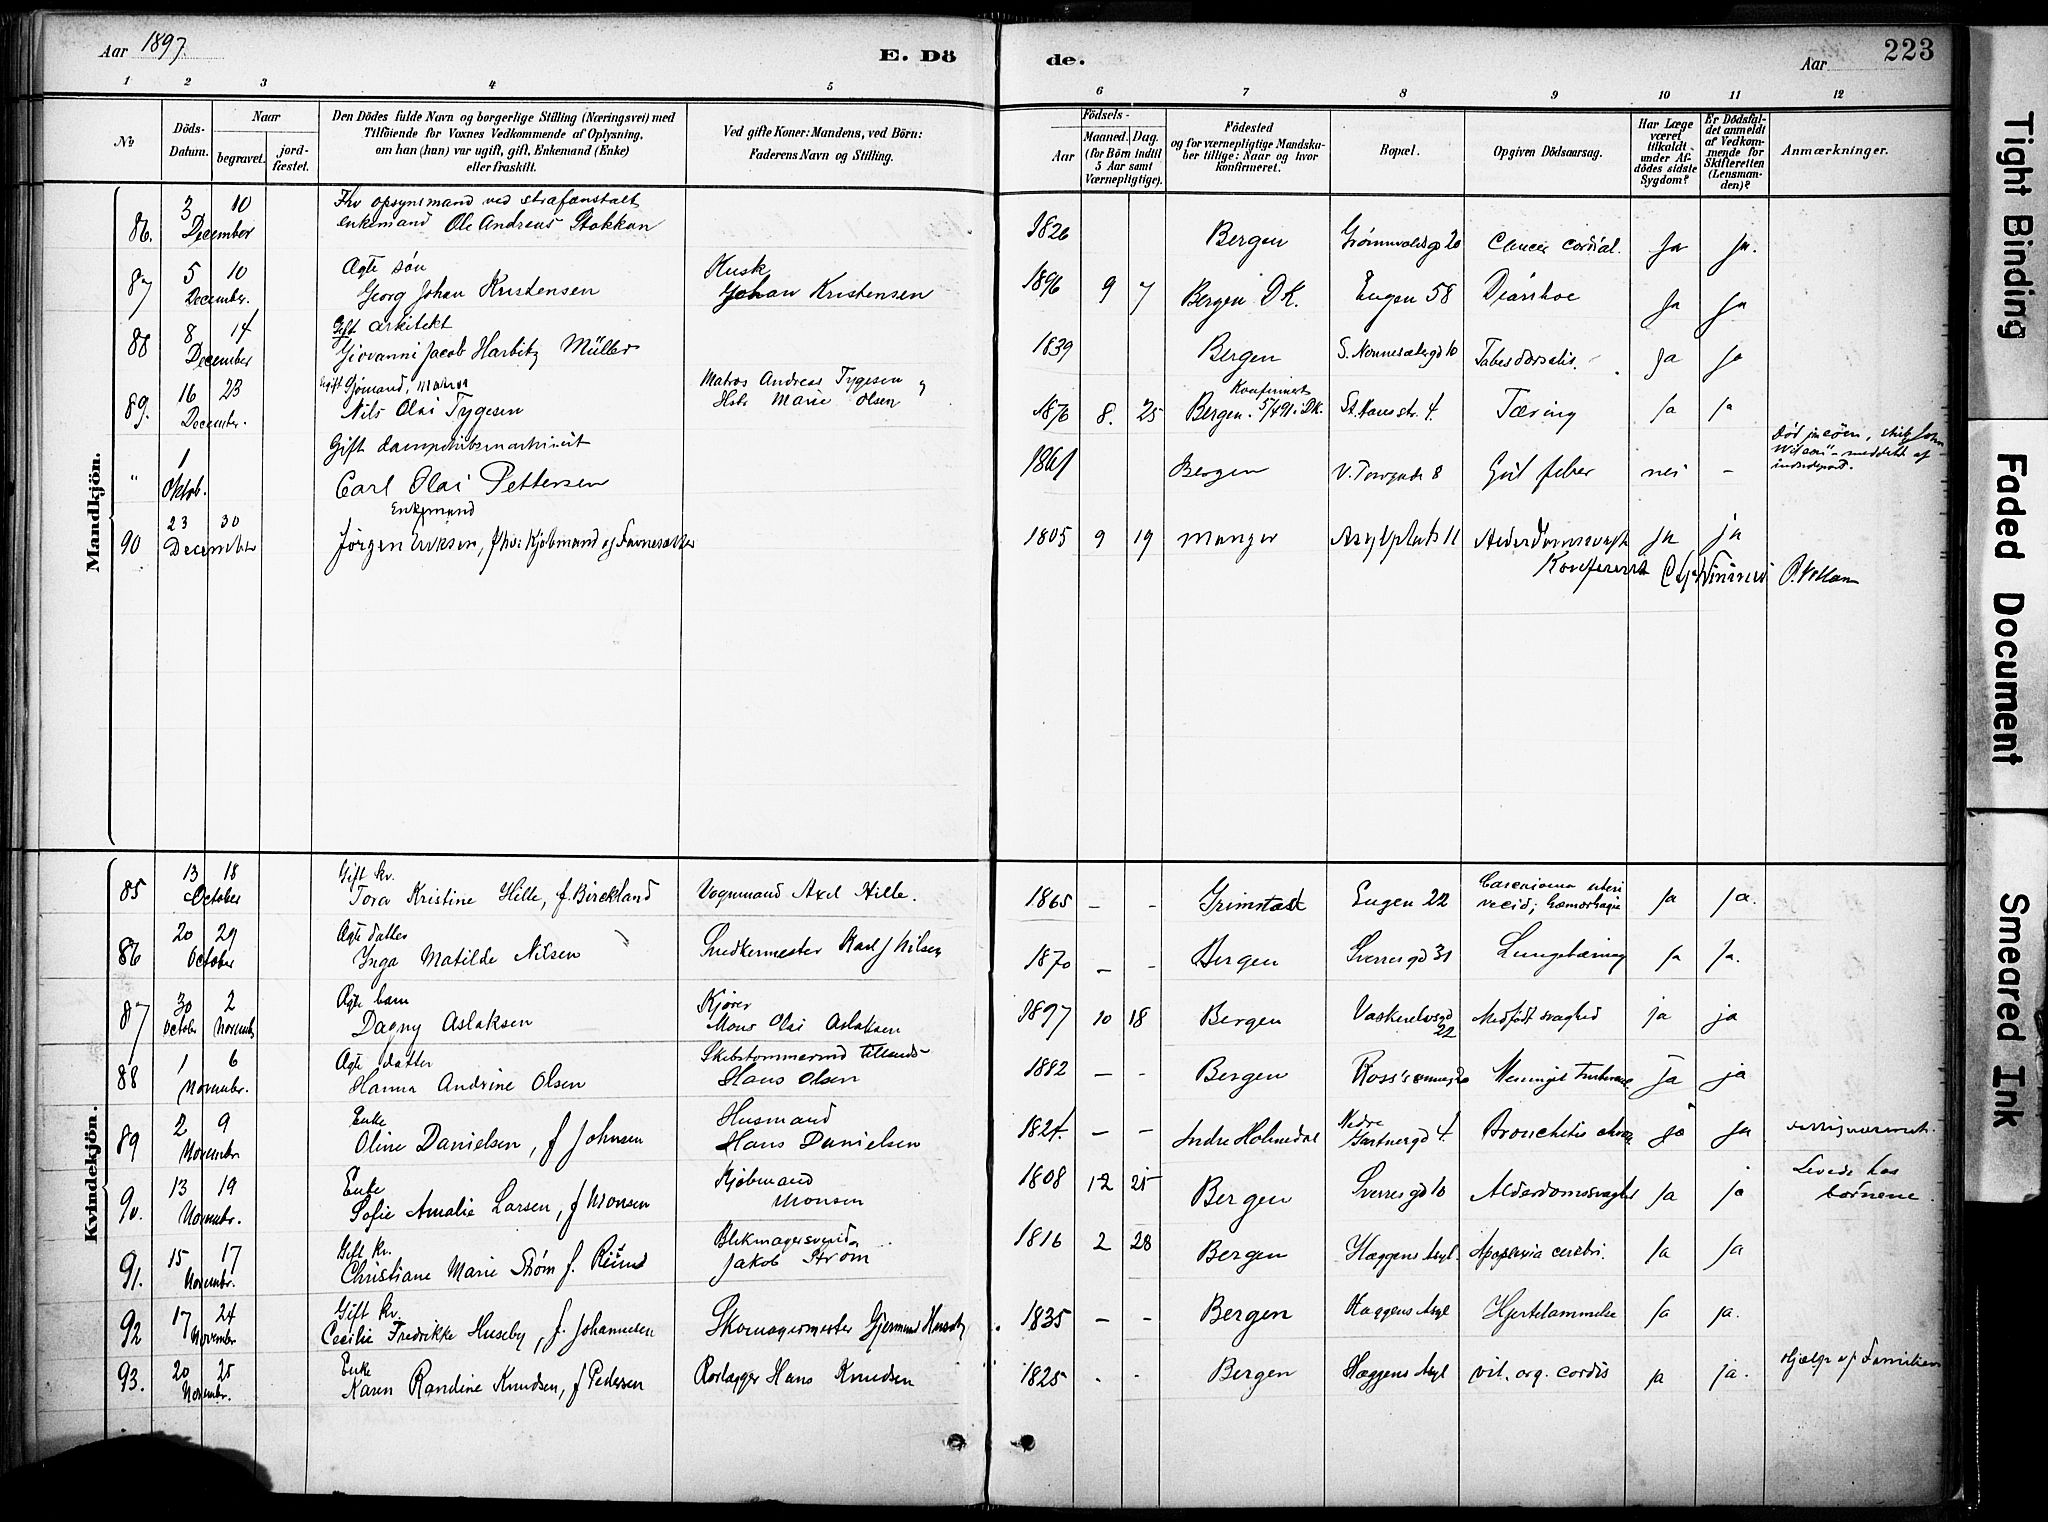 Aar 1897.
E. Dö
de.
Aar
223
1 2 3 4 5 6 7 8 9 10 11 12
No
Döds-
Datum.
Naar
begravet.
jord-
fæstet.
Den Dödes fulde Navn og borgerlige Stilling (Næringsvei) med
Tilföiende for Voxnes Vedkommende af Oplysning,
om han (hun) var ugift, gift, Enkemand (Enke)
eller fraskilt.
Ved gifte Koner: Mandens, ved Börn:
Faderens Navn og Stilling.
Födsels-
Aar
Maaned. Dag.
(for Börn indtil
5 Aar samt
Værnepligtige).
Födested
og for værnepligtige Mandsku-
ber tillige: Naar og hvor
konfirmeret.
Bopæl.
Opgiven Dödsaarsag.
Har Læge
været
tilkaldt
under Af-
dödes sidste
Sygdom?
Er Dödsfal-
det anmeldt
af Vedkom-
mende for
Skifteretten
(Lensman-
den)?
Anmærkninger.
Mandkjön.
86. 3 10 December
Fhv opsynsmand ved strafanstalt
enkemand Ole Andreas Stokkan
1826 Bergen 20 Cancer Ja Ja.
87 5 10 December.
Ægte søn
Georg Johan Kristensen
Kusk
Johan Kristensen
1896 9 7 Bergen D.K. Engen 58 Diarrhoe Ja Ja
88 8 14 December
Gift arkitekt
Giovanni Jacob Harbitz Müller
1839 Bergen 10 Tabes dorsalis. Ja Ja
89. 16 23 December.
Gift Sjømand,
Nils Olai Tygesen
Matros Andreas Tygesen og
Hstr. Marie Olsen
1876 8. 25 Bergen. Konfirmert 5/4 91 i D.K. St. Hansstr. 4. Tæring Ja Ja
" 1 Oktob.
Gift
Carl Olai Pettersen
1861 Bergen V. Torvgade 8 Gul feber nei -
90 23 30 December
Enkemand
Jørgen Eriksen, fhv. Kjøbmand og
1805 9 19 Manger Asylplads 11 Alderdomssvagh Ja ja
Konfereret
Kvindekjön.
85 13 18 October
Gift kv.
Tora Kristine Hille, f. Birckland
Vognmand Axel Hille.
1865 - - Grimstad Engen 22 Carcinoma uteri Ja Ja.
86 20 29 October
Ægte datter
Inga Matilde Nilsen
Snedkermester Karl J Nilsen
1870 - - Bergen Sverresgd 31 Lungetæring Ja Ja.
87 30 October 2 Novembr
Ægte barn
Dagny Aslaksen
Kjører
Mons Olai Aslaksen
1897 10 18 Bergen 22 Medfødt svaghed ja ja
88 1 6 Novembr.
Ægte datter
Hanna Andrine Olsen
Hans Olsen
1882 - - Bergen Ja ja
89 2 9 Novembr
Enke
Oline Danielsen, f Johnsen
Husmand
Hans Danielsen
1824. - - Indre Holmedal Nedre
Gartnergd 4. Bronchitis chron Ja Ja
90. 13 19 Novembr.
Enke
Sofie Amalie Larsen, f Monsen
Kjøbmand
Monsen
1808 12 25 Bergen Sverresgd 10 Alderdomssvaghed Ja Ja Levede hos
børnene.
91. 15 17 Novembr.
Gift kv.
Christiane Marie Strøm f.
Blikmagersvend
Jakob Strøm
1816 2 28 Bergen Haggens Asyl. Apoplexia cerebri. Ja Ja
92 17 24 November
Gift kv.
Cecilie Fredrikke Huseby, f. Johannesen
Skomagermester Gjermund Huseby
1835 - - Bergen Haggens Asyl Hjertelammelse Ja Ja.
93. 20 25 Novembr.
Enke
Karen Randine Knudsen, f Pedersen
Rorlægger Hans Knudsen
1825 - - Bergen Haggens Asyl vit. org. cordis Ja Ja. Hjælp af Familien
Tight Binding
Faded Document
Smeared Ink